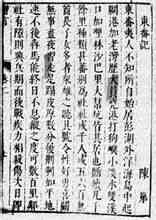 東番記
陳第
東番夷人不知所自始居彭湖外洋海島中起
魍港加老灣歷大員堯港打狗嶼小淡水雙溪
口加哩林沙巴里大幫坑皆其居也斷續凡千
餘里種類甚蕃別為社社或千人或五六百無
酋長子女多者眾雄之聽其號令性好勇喜鬥
無事晝夜習走足蹋皮厚數分履荊刺如平地
速不後犇馬能終日不息縱之度可數百里鄰
社有隙則興兵期而後戰疾力相殺傷次日即